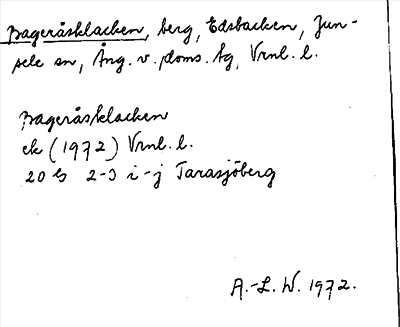 Bageråsklacken, berg, Edsbacken, Jun-
sele sn, Ång. v. doms. hg, Vrnl. l.
Bageråsklacken
ek (1972) Vrnl. l.
20 G 2-3 i-j Tarasjöberg
A.-L. W. 1972.